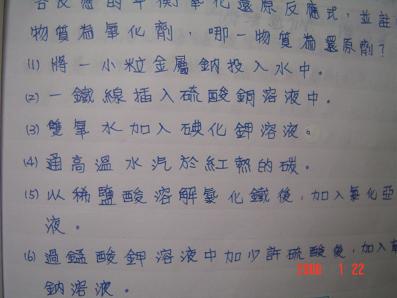 各反應的平衡氧化還原反應式，並註
物質為氧化劑，哪一物質為還原劑？
(1) 將一小粒金屬鈉投入水中。
(2) 一鐵線插入硫酸銅溶液中。
(3) 雙氧水加入碘化鉀溶液。
(4) 通高溫水汽於紅熱的碳。
(5) 以稀鹽酸溶解氧化鐵後，加入氯化亞
液。
(6) 過錳酸鉀溶液中加少許硫酸後，加入
鈉溶液。
2006. 1 22